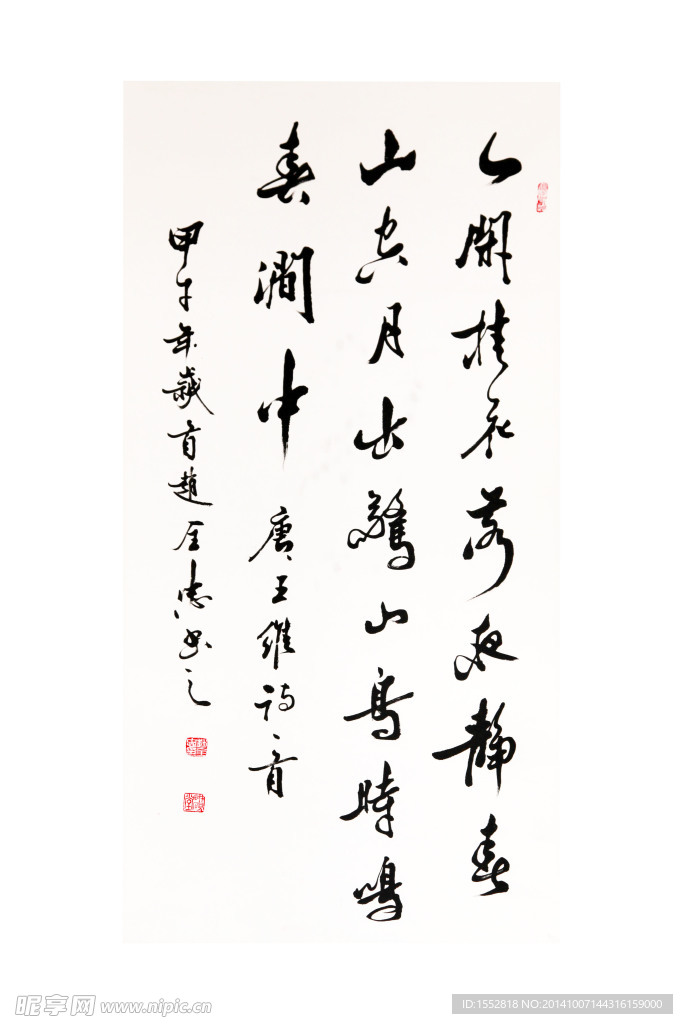 人閑桂花落夜靜春
山空月出驚山鳥時鳴
春澗中 唐王維詩一首
甲午年歲首趙志書之
昵享网 www.nipic.cn
ID:1552818 NO:20141007144316159000